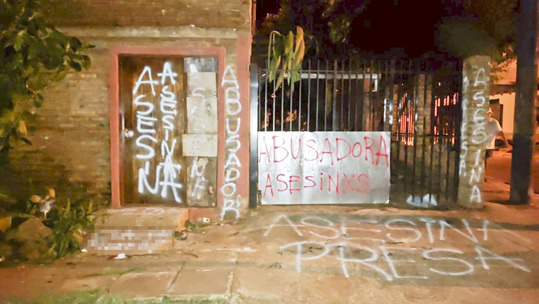 ASESINA
ASESINA
ABUSADOR
ABUSADORA
ASESINXS
ASESINA
ASESINA
PRESA